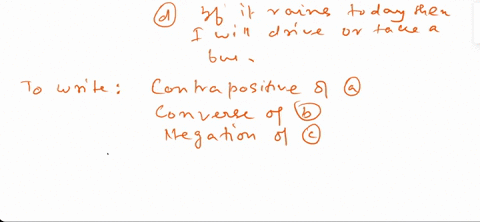 (d) If it rains today then
I will drive or take a
bus.
To write: Contrapositive of (a)
Converse of (b)
Negation of (c)